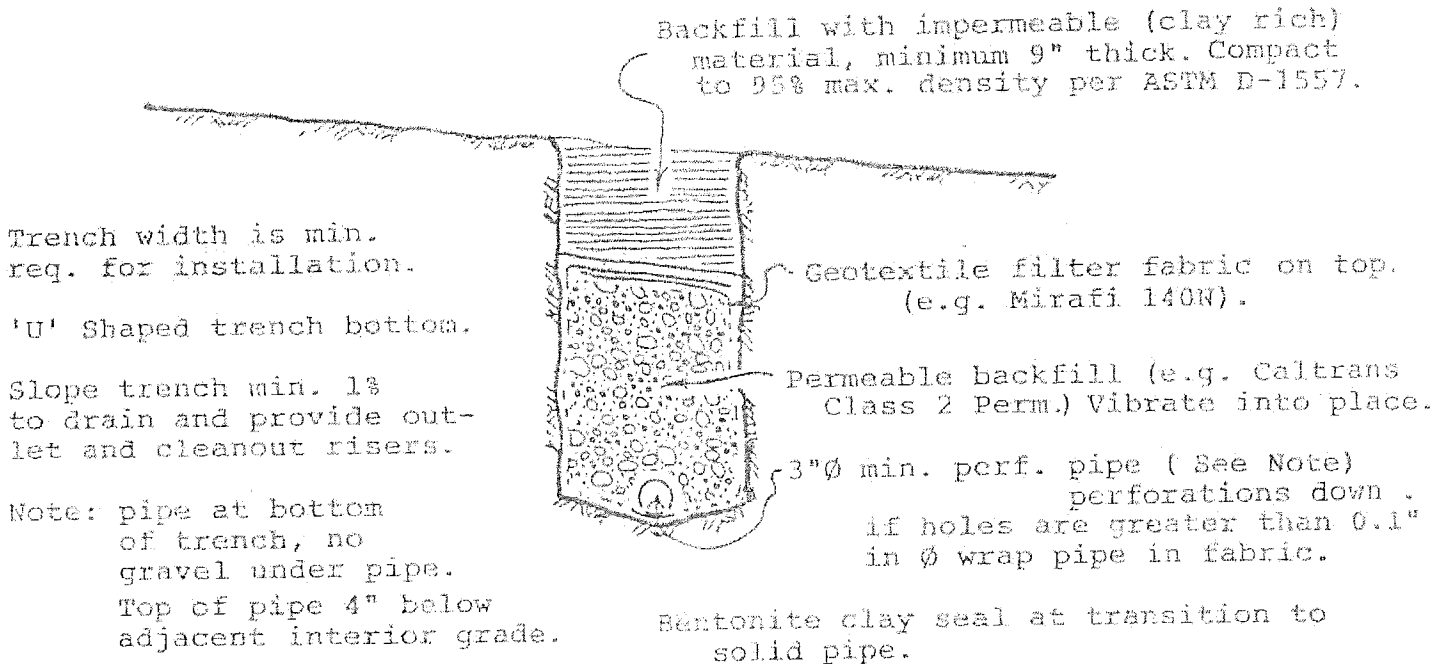 Backfill with impermeable (clay rich)
material, minimum 9" thick. Compact
to 95% max. density per ASTM D-1557.
Trench width is min.
req. for installation.
'U' Shaped trench bottom.
Slope trench min. 1%
to drain and provide out-
let and cleanout risers.
Note: pipe at bottom
of trench, no
gravel under pipe.
Top of pipe 4" below
adjacent interior grade.
Geotextile filter fabric on top.
(e.g. Mirafi 140N).
Permeable backfill (e.g. Caltrans
Class 2 Perm.) Vibrate into place.
3"Ø min. perf. pipe ( See Note)
perforations down .
if holes are greater than 0.1"
in Ø wrap pipe in fabric.
Bentonite clay seal at transition to
solid pipe.